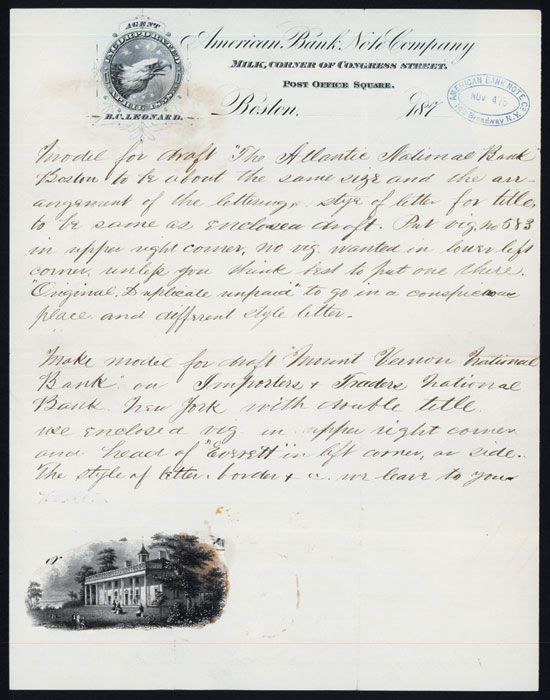 AGENT
INCORPORATED
APRIL 1858
B.C. LEONARD.
American Bank Note Company
MILK, CORNER OF CONGRESS STREET.
POST OFFICE SQUARE.
Boston, 187
AMERICAN BANK NOTE CO.
NOV 4 75
Broadway N.Y.
Model for draft "The Atlantic National Bank"
Boston to be about the same size and the arr-
angement of the lettering. style of letter for title,
to be same as enclosed draft. Put vig. no 583
in upper right corner, no vig. wanted in lower left
corner, unless you think best to put one there.
"Original, Duplicate unpaid" to go in a conspicuous
place and different style letter-
Make model for draft "Mount Vernon National
Bank" on Importers & Traders National
Bank New York with double title.
use enclosed vig. in upper right corner
and head of "Everett" in left corner, or side.
The style of letter border & c. we leave to you-